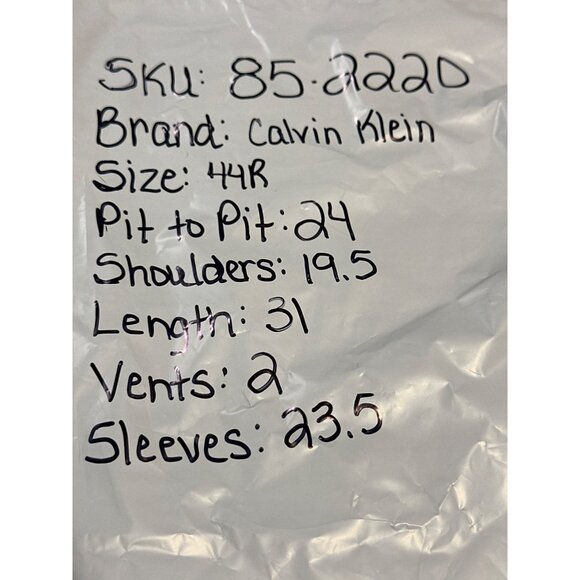 SKU: 85-2220
Brand: Calvin Klein
Size: 44R
Pit to Pit: 24
Shoulders: 19.5
Length: 31
Vents: 2
Sleeves: 23.5